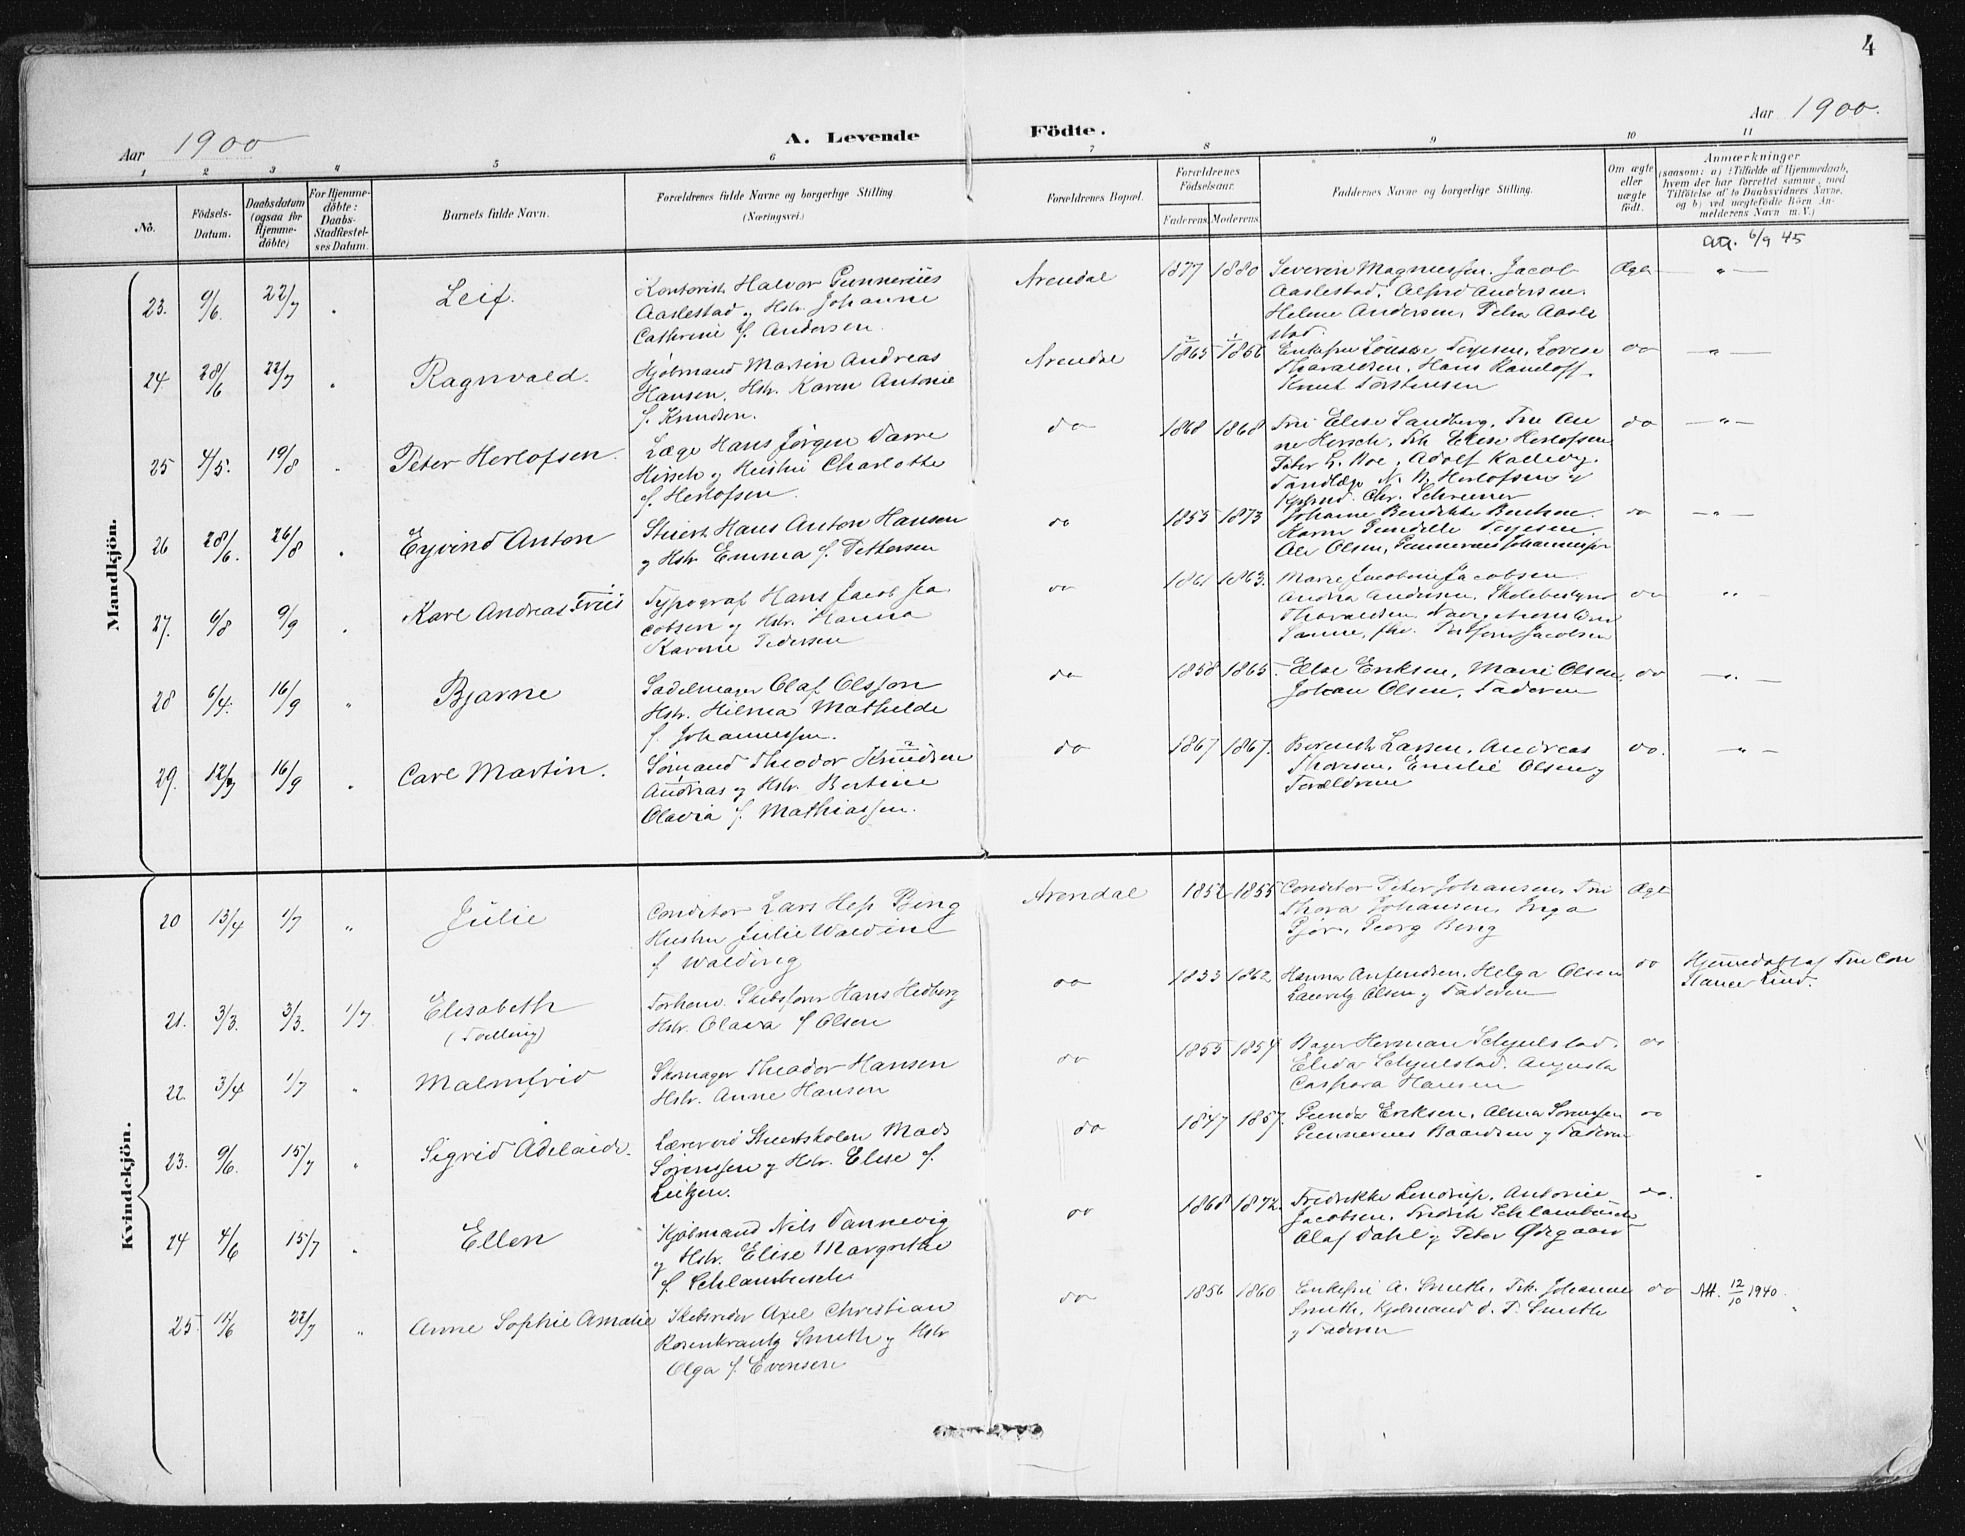 4
Aar 1900
A. Levende Födte.
Aar 1900.
1 2 3 4 5 6 7 8 9 10 11
No.
Födsels-
Datum.
Daabsdatum
(ogsaa for
Hjemme-
döbte)
For Hjemme-
döbte:
Daabs-
Stadfæstel-
ses Datum.
Barnets fulde Navn.
Forældrenes fulde Navne og borgerlige Stilling
(Næringsvei.)
Forældrenes Bopæl.
Forældrenes
Födselsaar.
Faderens. Moderens.
Faddernes Navne og borgerlige Stilling.
Om ægte
eller
uægte
födt.
Anmærkninger
(saasom: a) i Tilfælde af Hjemmedaab,
hvem der har forrettet samme, med
Tilföielse af to Daabsvidners Navne,
og b) ved uægtefödte Börn An-
melderens Navn m. V.)
6/9 45
Mandkjön.
23. 9/6. 22/7 " Leif.
Kontorist Halvor Gunnerius
Aaslestad og Hstr. Johanne
Cathrine f. Andersen.
Arendal 1877 1880
Severin Magnussen. Jacob
Aaslestad, Alfred Andersen.
Helene Andersen, Petra Aasle
stad.
Ægte — " —
24 28/6 22/7 " Ragnvald.
Kjøbmand Martin Andreas
Hansen, Hstr. Karen Antonie
f. Knudsen.
Arendal 1865 1866
Enkefru Louise Terjesen, Lovise
Tharaldsen, Hans Randoff.
Knut Torstensen
do — " —
25 4/5. 19/8 " Peter Herlofsen.
Læge Hans Jørgen Darre
Hirsch og Hustru Charlotte
f. Herlofsen.
do 1868 1868
Fru Elise Sandberg, Fru An
ne Hirsch, Frk Elise Herlofsen
Peter L. Boe, Adolf Kallevig.
Tandlæge N. M. Herlofsen og
Kjøbmd. Chr. Schreiner
do — " —
26 28/6. 26/8 " Eyvind Anton
Stuert Hans Anton Hansen
og Hstr. Emma f. Pettersen
do 1853 1873
Johanne Bendikte Bentsen.
Karen Gundille Terjesen.
Ole Olsen, Gunnerius Johannessen
do — " —
27. 6/8 9/9 " Karl Andreas Friis
Typograf Hans Jacob Ja
cobsen og Hstr. Hanna
Karine Pedersen
do 1861 1863.
Marie Jacobine Jacobsen.
Andrea Andersen, Skolebestyrer
Tharaldsen, Navigations
Sanne, Jacobsen
do " —
28 6/4. 16/9 " Bjarne
Sadelmager Olaf Olsson
Hstr. Hilma Mathilde
f. Johannessen.
do 1858 1865.
Else Eriksen, Marie Olsen,
Johan Olsen, Faderen
do — " —
29. 12/7 16/9 " Carl Martin.
Sømand Theodor Knudsen
Andreas og Hstr. Bertine
Olavia f. Mathiassen.
do 1867 1867.
Berent Larsen, Andreas
Thorsen, Emilie Olsen og
Forældrene
do. — " —
Kvindekjön.
20 13/4 1/7 " Julie
Conditor Lars Hess Bing
Hustru Julie Waldine
f. Walding
Arendal 1852 1855
Conditor Peter Johansen, Fru
Thora Johansen, Inga
Georg Bing
Ægte
21. 3/3. 3/3. 1/7 Elisabeth
(Tvilling)
Forhenv. Skibsfører Hans Hedberg
Hstr. Olava f Olsen
do 1833 1862
Hanna Antendsen, Helga Olsen
Lauritz Olsen og Faderen
do Hjemmedøbt af Fru Con
stance Lind.
22. 3/4 1/7 " Malmfrid
Skomager Theodor Hansen
Hstr. Anne Hansen
do 1855 1854
Bager Herman Schjulstad.
Elida Schjulstad. Augusta
Caspara Hansen
do
23. 9/6. 15/7 " Sigrid Adelaide.
Lærer ved Stuertskolen Mads
Sørenssen og Hstr. Elise f.
Lützen.
do 1847 1857.
Gunda Eriksen, Alma Sørenssen
Gunnerius Baardsen og Faderen
do
24 4/6 15/7 " Ellen
Kjøbmand Nils Dannevig
og Hstr. Elise Margrethe
f. Schlambusch
do 1868 1872.
Fredrikke Lendrup, Antonie
Jacobsen, Fredrik Schlambusch
Olaf Dahl og Peter Ødegaard
do.
25. 11/6 22/7 " Anne Sophie Amalie
Skibsreder Axel Christian
Rosenkrantz Smith og Hstr
Olga f. Evensen
do 1856 1860
Enkefru A. Smith, Frk. Johanne
Smith, Kjøbmand d. T. Smith
og Faderen
do Att. 12/10 1940.